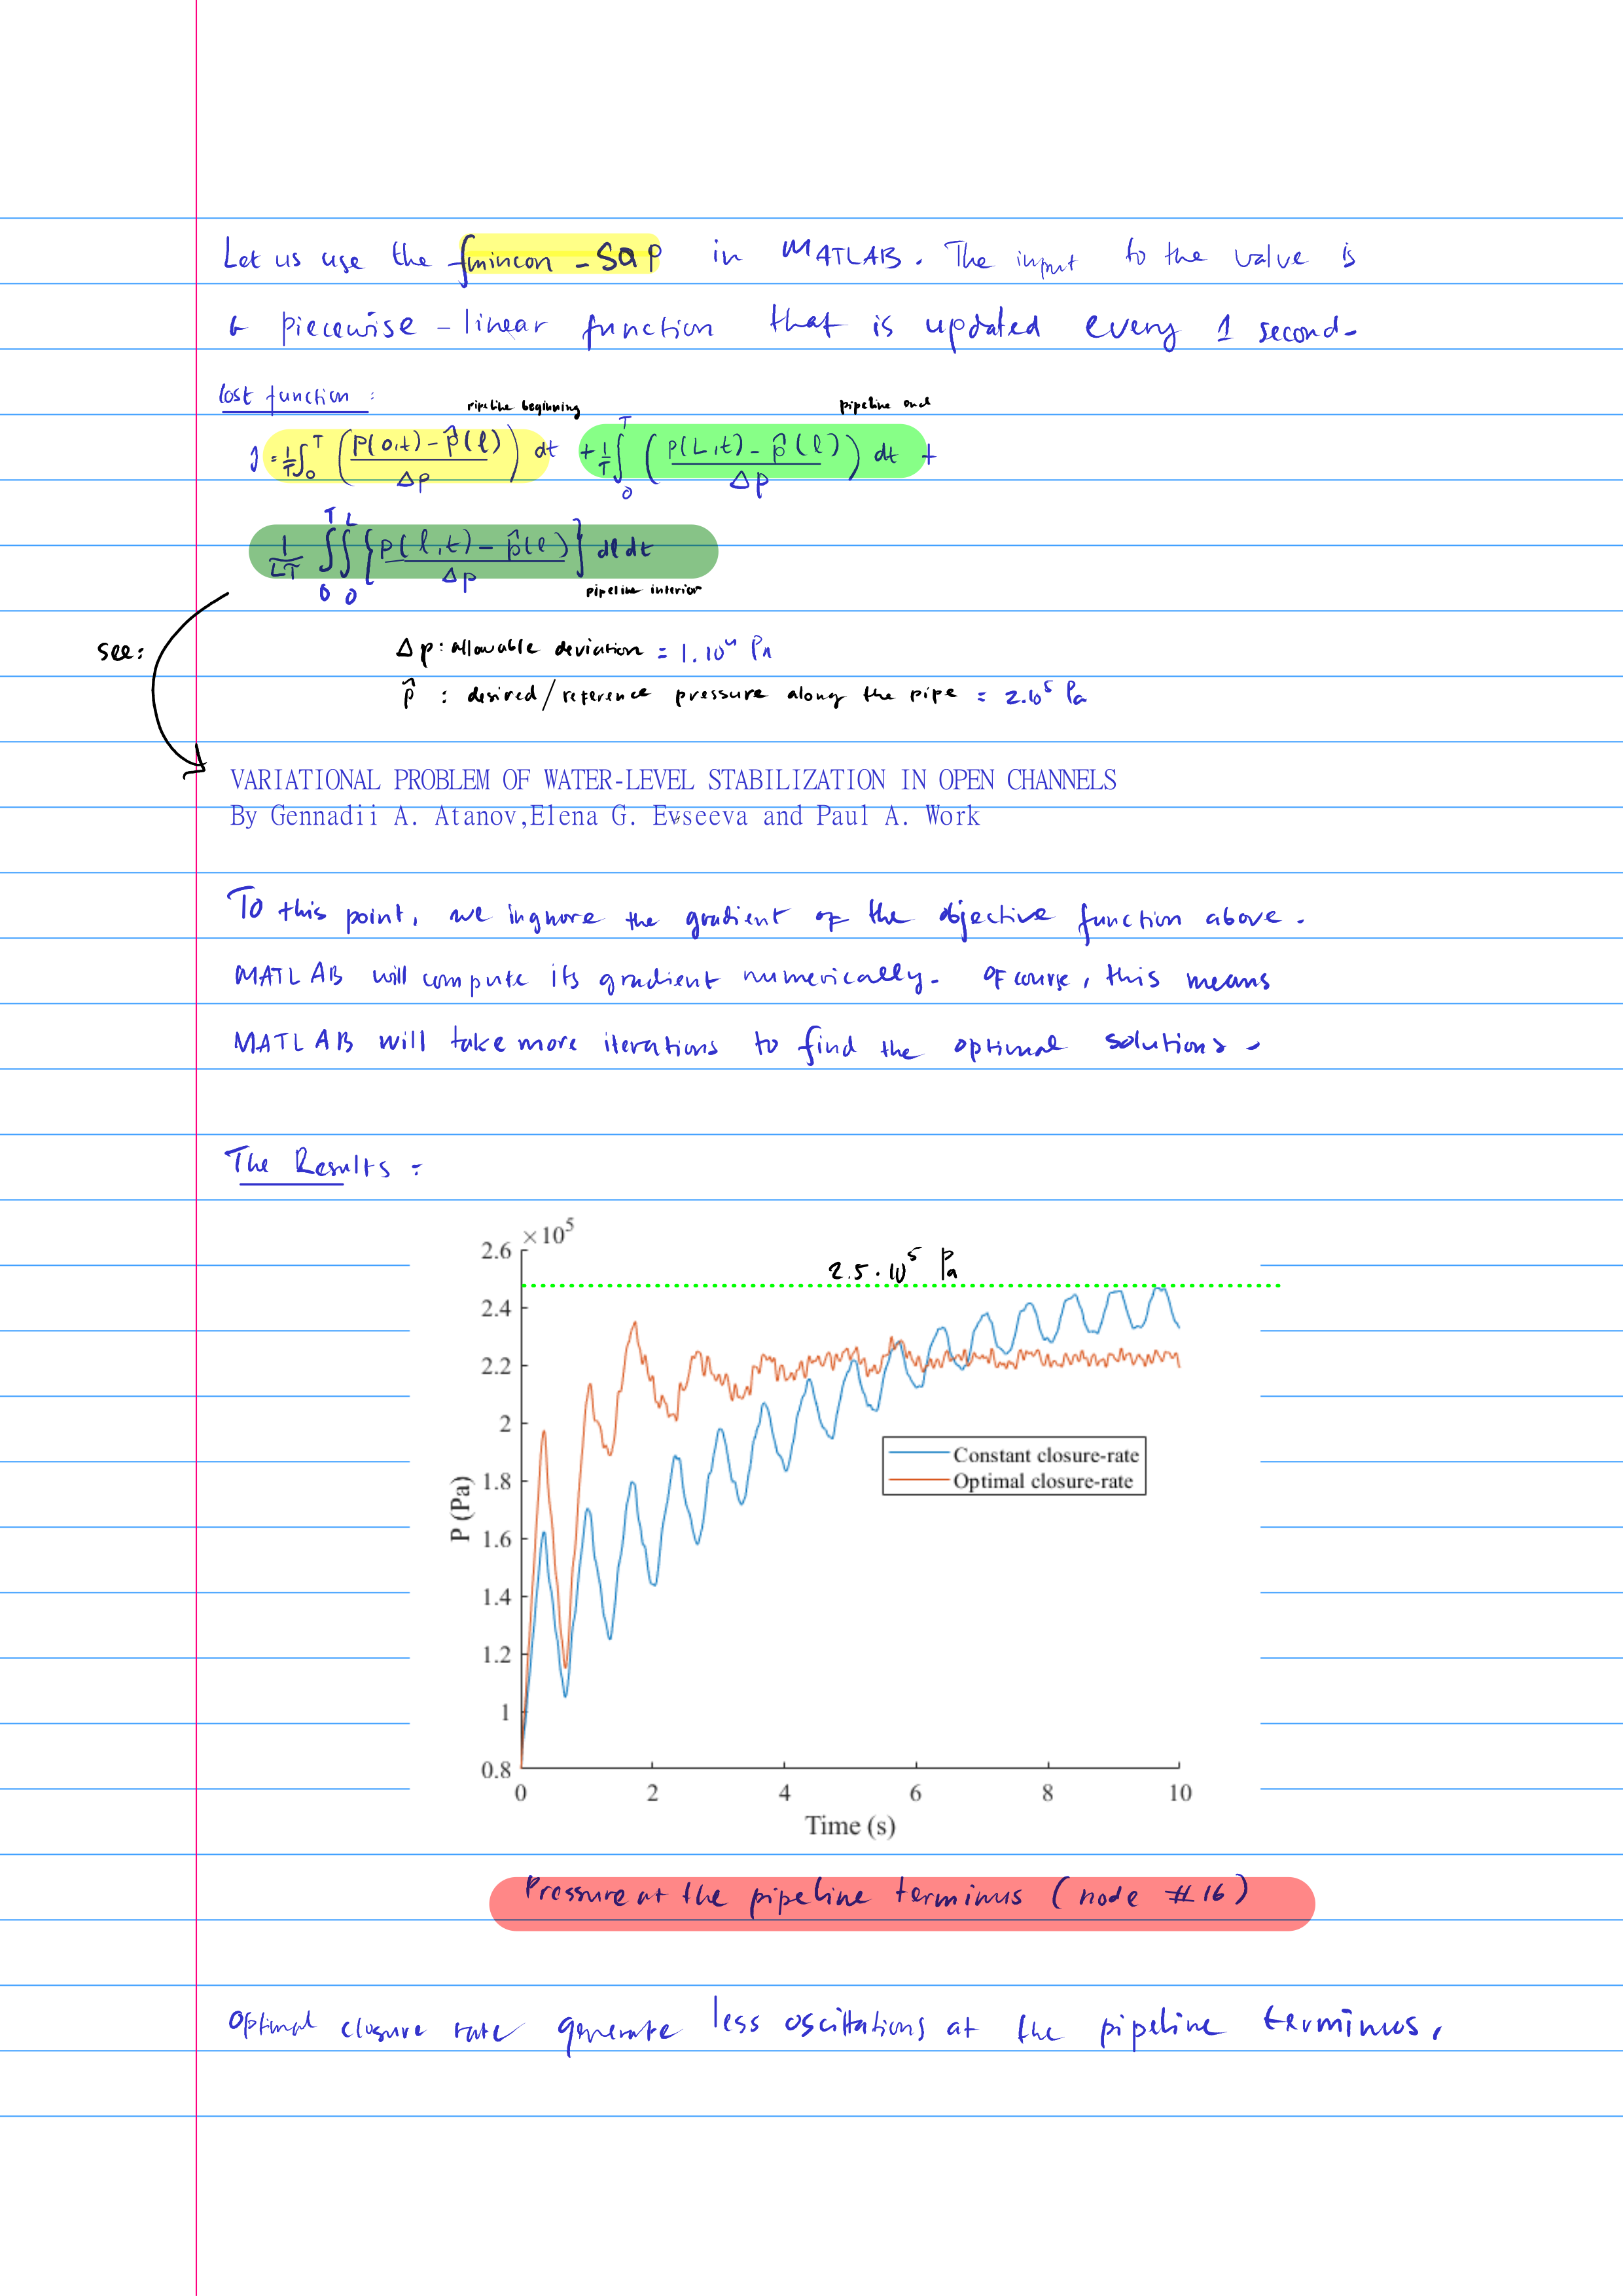 Let us use the fmincon - SQP in MATLAB. The input to the value is
a piecewise - linear function that is updated every 1 second.
Cost function :
pipeline beginning pipeline end
J = 1/T ∫_0^T ( (P(0,t) - p̂(l)) / Δp ) dt + 1/T ∫_0^T ( (P(L,t) - p̂(l)) / Δp ) dt +
1/LT ∫_0^T ∫_0^L { (P(l,t) - p̂(l)) / Δp } dl dt
pipeline interior
see:
Δp : allowable deviation = 1.10^4 Pa
p̂ : desired/reference pressure along the pipe = 2.10^5 Pa
VARIATIONAL PROBLEM OF WATER-LEVEL STABILIZATION IN OPEN CHANNELS
By Gennadii A. Atanov,Elena G. Evseeva and Paul A. Work
To this point, we ingnore the gradient of the objective function above.
MATLAB will compute its gradient numerically. Of course, this means
MATLAB will take more iterations to find the optimal solutions.
The Results :
×10^5
2.5 · 10^5 Pa
2.6
2.4
2.2
2
1.8
1.6
1.4
1.2
1
0.8
P (Pa)
Constant closure-rate
Optimal closure-rate
0 2 4 6 8 10
Time (s)
Pressure at the pipeline terminus (node #16)
Optimal closure rate generate less oscillations at the pipeline terminus.